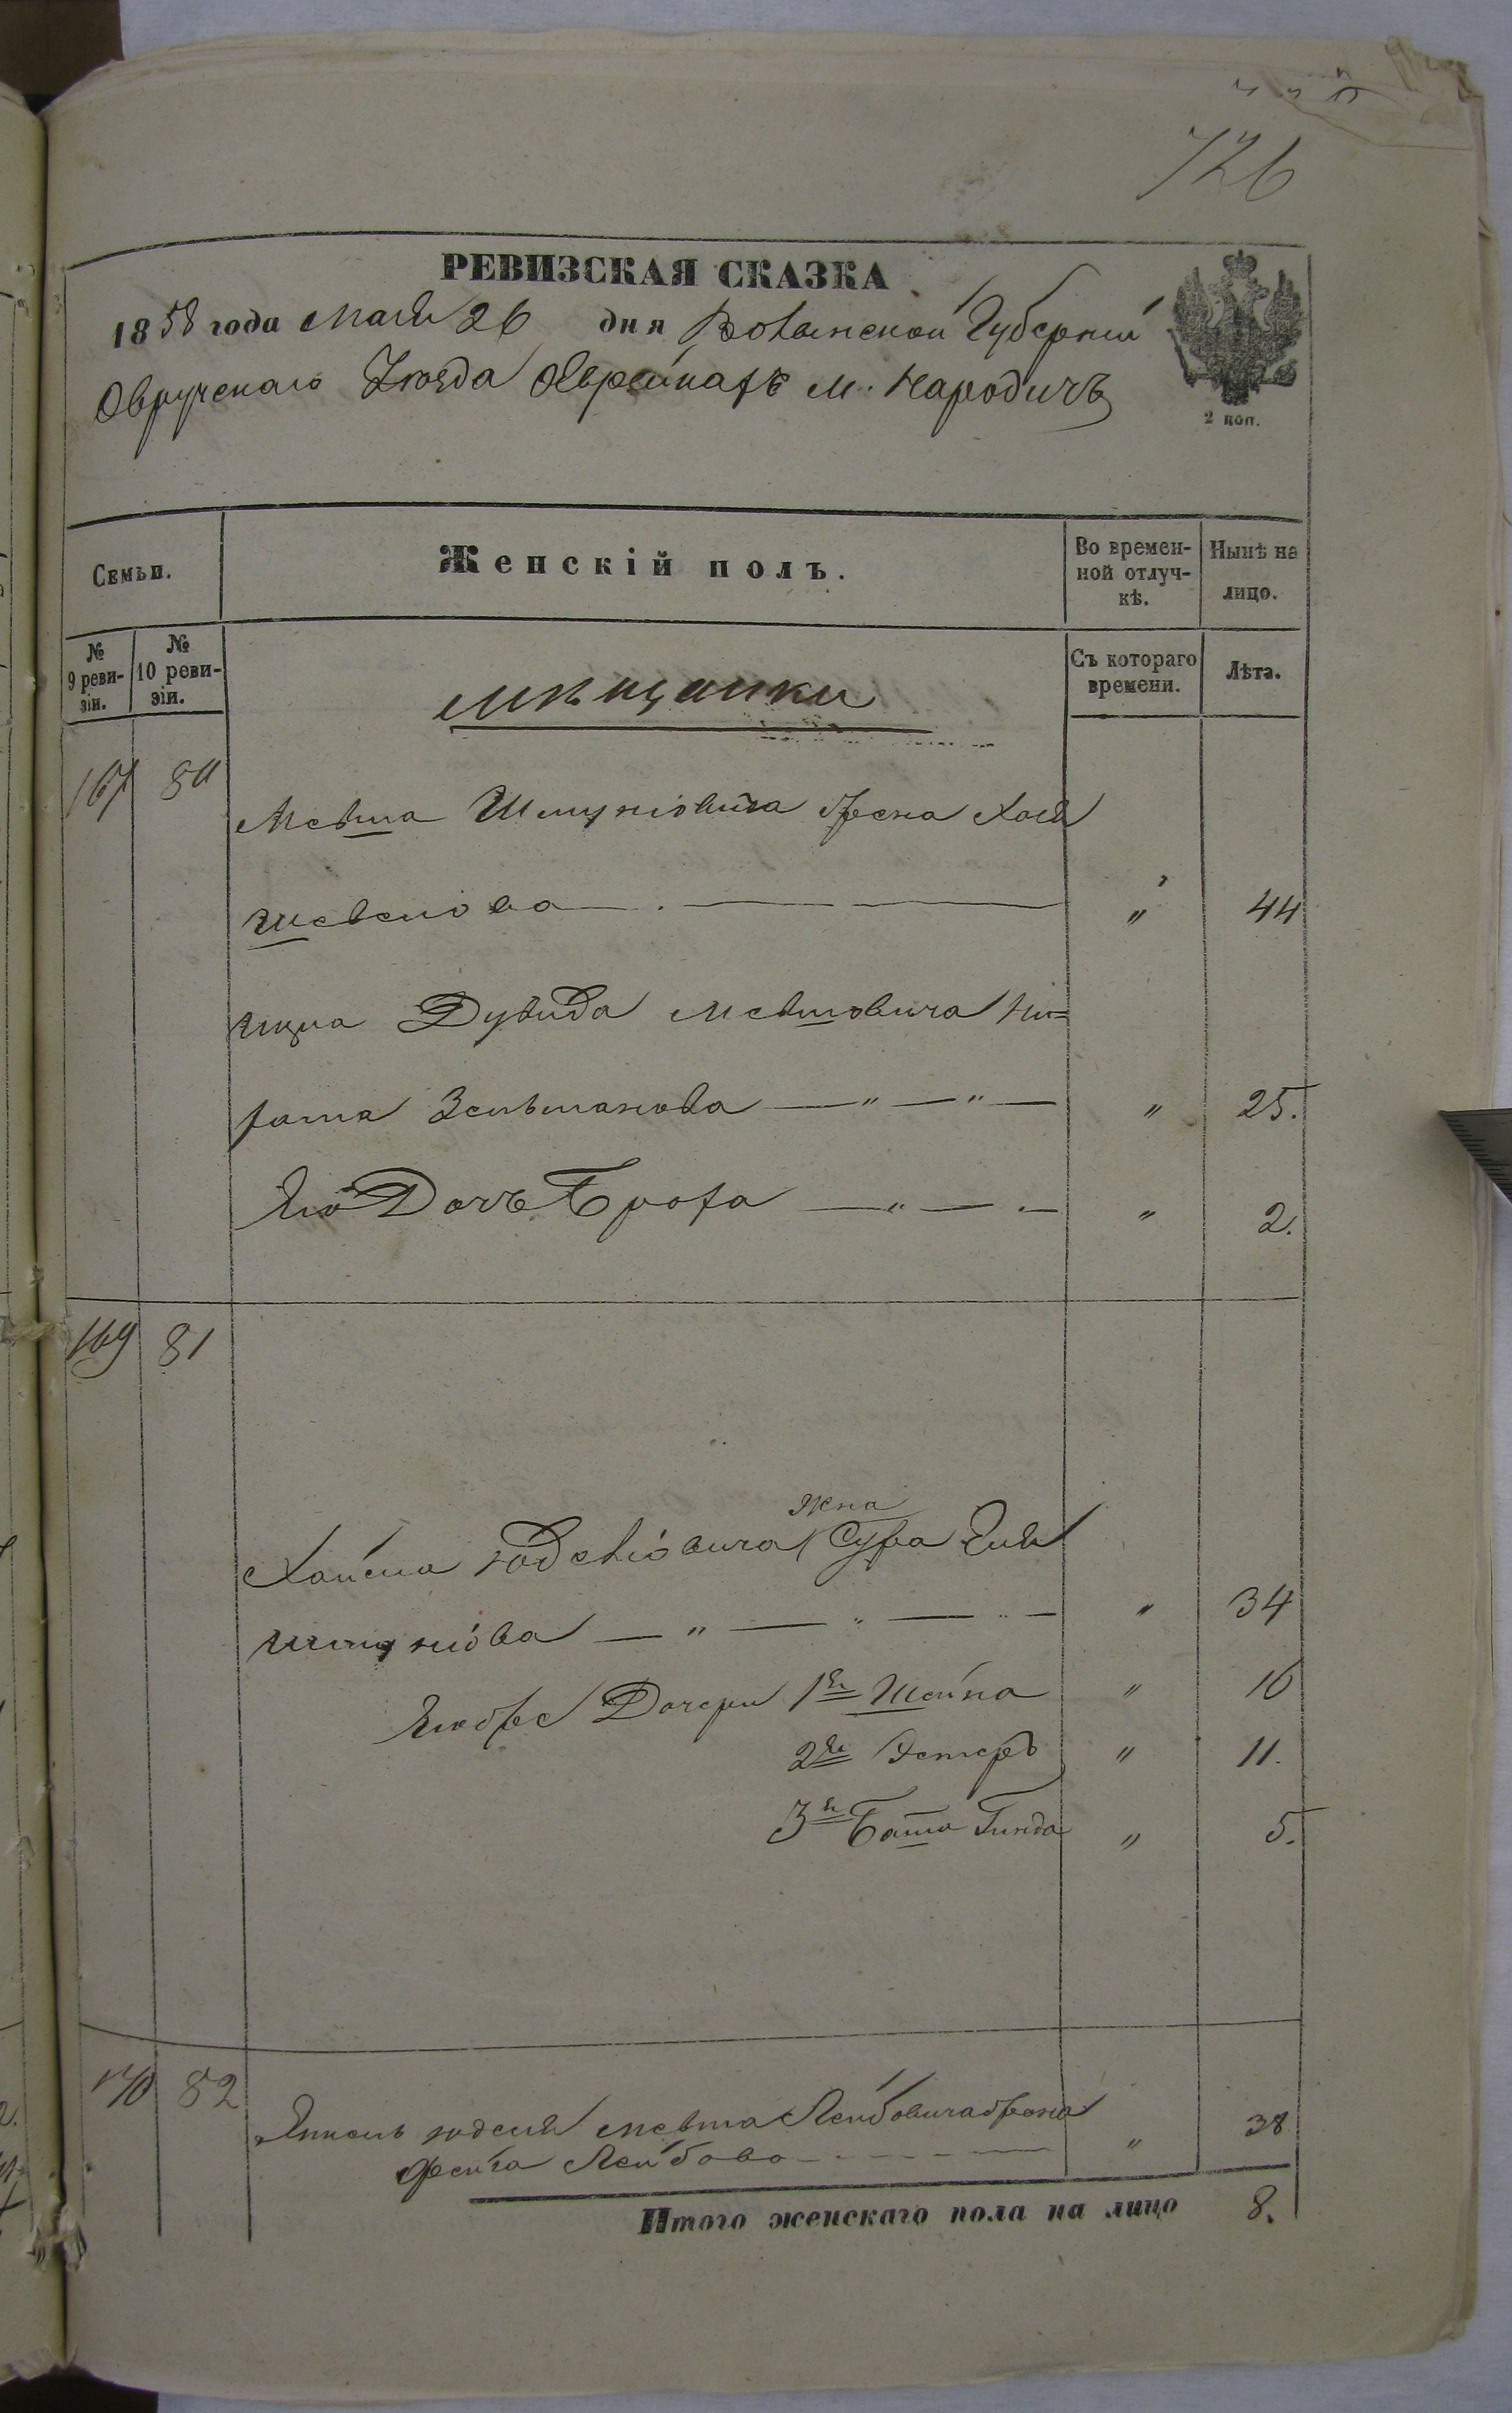 726
РЕВИЗСКАЯ СКАЗКА
1858 года Мая 26 дня Волынской Губерніи
Овручскаго Уезда Еврейкахъ м. Народичъ
2 коп.
Семьи.
Женскій полъ.
Во времен-
ной отлуч-
кѣ.
Нынѣ на
лицо.
№
9 реви-
зіи.
№
10 реви-
зіи.
Съ котораго
времени.
Лѣта.
Мѣщанки
167 80
Мевша Шмуліовича жена Хая
Шевелова " 44
Дувида Мевшовича
Зельманова " " " 25.
Его ДочьБроха " " 2.
169 81
жена
Хаима Юделіовича Сура Ент
Шмуліова " " " 34
Его же Дочери 1я Шейна " 16
2я Эстеръ " 11.
3я Баша Гинда " 5.
170 82
Юделя Мевша Лейбовича жена
Фейга Лейбова " 38
Итого женскаго пола на лицо 8.